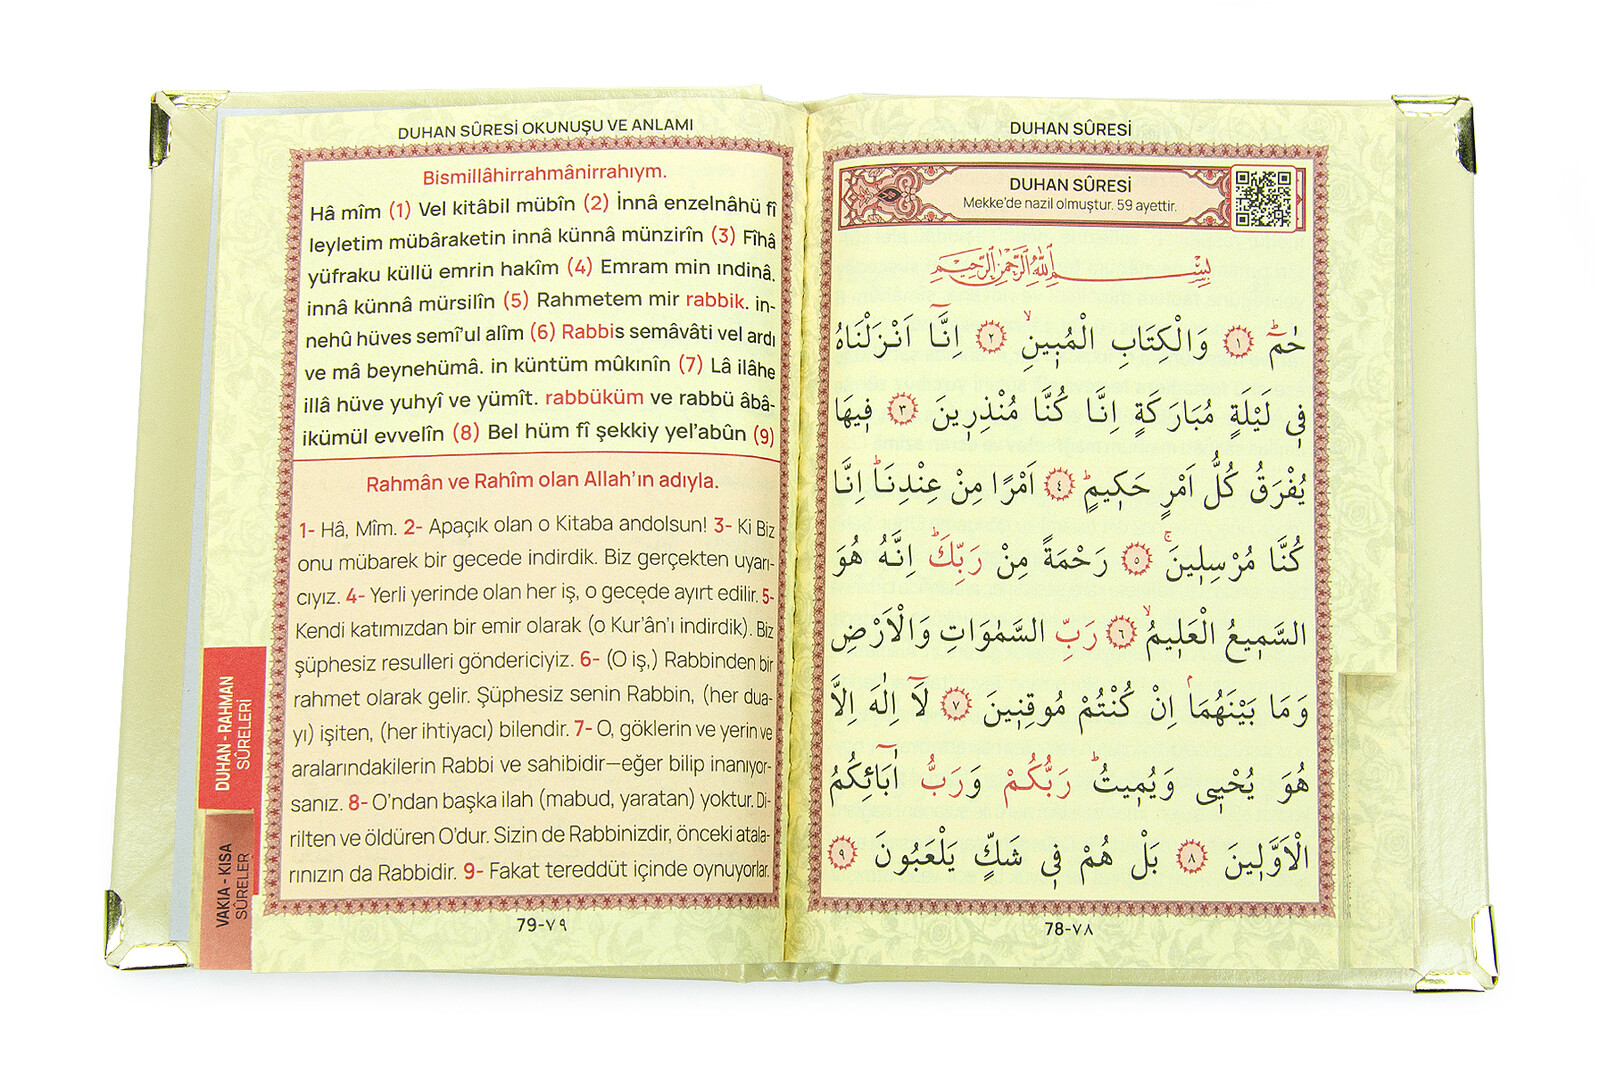 DUHAN SÛRESİ OKUNUŞU VE ANLAMI
Bismillâhirrahmânirrahıym.
Hâ mîm (1) Vel kitâbil mübîn (2) İnnâ enzelnâhü fî
leyletim mübâraketin innâ künnâ münzirîn (3) Fîhâ
yüfraku küllü emrin hakîm (4) Emram min ındinâ.
innâ künnâ mürsilîn (5) Rahmetem mir rabbik. in-
nehû hüves semî'ul alîm (6) Rabbis semâvâti vel ardı
ve mâ beynehümâ. in küntüm mûkınîn (7) Lâ ilâhe
illâ hüve yuhyî ve yümît. rabbüküm ve rabbü âbâ-
ikümül evvelîn (8) Bel hüm fî şekkiy yel'abûn (9)
Rahmân ve Rahîm olan Allah'ın adıyla.
1- Hâ, Mîm. 2- Apaçık olan o Kitaba andolsun! 3- Ki Biz
onu mübarek bir gecede indirdik. Biz gerçekten uyarı-
cıyız. 4- Yerli yerinde olan her iş, o gecede ayırt edilir. 5-
Kendi katımızdan bir emir olarak (o Kur'ân'ı indirdik). Biz
şüphesiz resulleri göndericiyiz. 6- (O iş,) Rabbinden bir
rahmet olarak gelir. Şüphesiz senin Rabbin, (her dua-
yı) işiten, (her ihtiyacı) bilendir. 7- O, göklerin ve yerin ve
aralarındakilerin Rabbi ve sahibidir—eğer bilip inanıyor-
sanız. 8- O'ndan başka ilah (mabud, yaratan) yoktur. Di-
rilten ve öldüren O'dur. Sizin de Rabbinizdir, önceki atala-
rınızın da Rabbidir. 9- Fakat tereddüt içinde oynuyorlar.
79-٧٩
DUHAN - RAHMAN
SÛRELERİ
VAKIA - KISA
SÛRELER
DUHAN SÛRESİ
DUHAN SÛRESİ
Mekke'de nazil olmuştur. 59 ayettir.
بِسْمِ اللّٰهِ الرَّحْمٰنِ الرَّحٖيمِ
حٰمٓ ۚ ﴿١﴾ وَالْكِتَابِ الْمُبٖينِ ۙ ﴿٢﴾ اِنَّٓا اَنْزَلْنَاهُ
فٖي لَيْلَةٍ مُبَارَكَةٍ اِنَّا كُنَّا مُنْذِرٖينَ ﴿٣﴾ فٖيهَا
يُفْرَقُ كُلُّ اَمْرٍ حَكٖيمٍ ۙ ﴿٤﴾ اَمْرًا مِنْ عِنْدِنَاؕ اِنَّا
كُنَّا مُرْسِلٖينَ ۚ ﴿٥﴾ رَحْمَةً مِنْ رَبِّكَؕ اِنَّهُ هُوَ
السَّمٖيعُ الْعَلٖيمُ ۙ ﴿٦﴾ رَبِّ السَّمٰوَاتِ وَالْاَرْضِ
وَمَا بَيْنَهُمَاۢ اِنْ كُنْتُمْ مُوقِنٖينَ ﴿٧﴾ لَٓا اِلٰهَ اِلَّا
هُوَ يُحْيٖي وَيُمٖيتُؕ رَبُّكُمْ وَرَبُّ اٰبَٓائِكُمُ
الْاَوَّلٖينَ ﴿٨﴾ بَلْ هُمْ فٖي شَكٍّ يَلْعَبُونَ ﴿٩﴾
78-٧٨